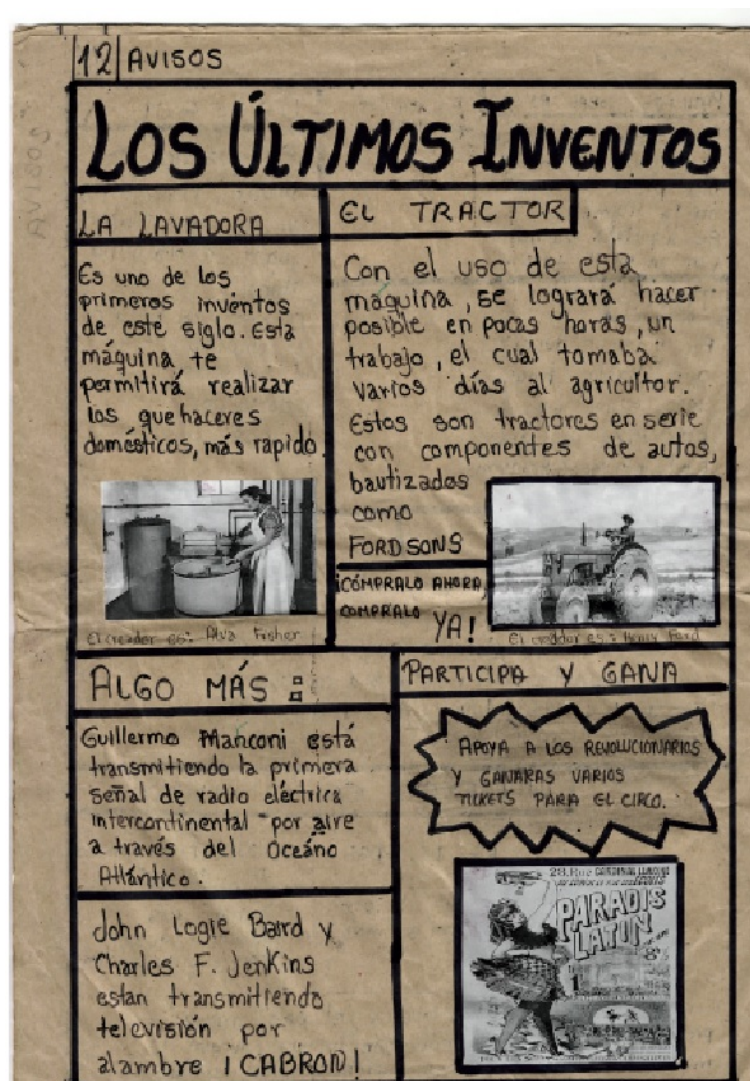 12 AVISOS
LOS ÚLTIMOS INVENTOS
LA LAVADORA
Es uno de los
primeros inventos
de este siglo. Esta
máquina te
permitirá realizar
los quehaceres
domésticos, más rapido.
El creador es: Alva Fisher
EL TRACTOR
Con el uso de esta
máquina, se logrará hacer
posible en pocas horas, un
trabajo, el cual tomaba
varios días al agricultor.
Estos son tractores en serie
con componentes de autos,
bautizados
como
FORDSONS
¡CÓMPRALO AHORA,
COMPRALO YA!
El creador es: Henry Ford
ALGO MÁS:
Guillermo Manconi está
transmitiendo la primera
señal de radio eléctrica
intercontinental por aire
a través del Oceáno
Atlántico.
John Logie Baird y
Charles F. Jenkins
estan transmitiendo
televisión por
alambre ¡CABRON!
PARTICIPA Y GANA
APOYA A LOS REVOLUCIONARIOS
Y GANARAS VARIOS
TICKETS PARA EL CIRCO.
28, Rue CARDINAL LEMOINE
PARADIS
LATIN